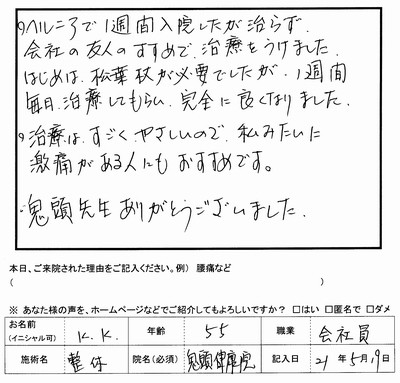 ・ヘルニアで1週間入院したが治らず、
会社の友人のすすめで、治療をうけました。
はじめは、松葉杖が必要でしたが、1週間
毎日治療してもらい、完全に良くなりました。
・治療は、すごくやさしいので、私みたいに
激痛がある人にもおすすめです。
鬼頭先生ありがとうございました。
本日、ご来院された理由をご記入ください。例）腰痛など
（ ）
※ あなた様の声を、ホームページなどでご紹介してもよろしいですか？ □はい □匿名で □ダメ
お名前（イニシャル可） K.K. 年齢 55 職業 会社員
施術名 整体 院名（必須） 鬼頭健康院 記入日 21年5月19日